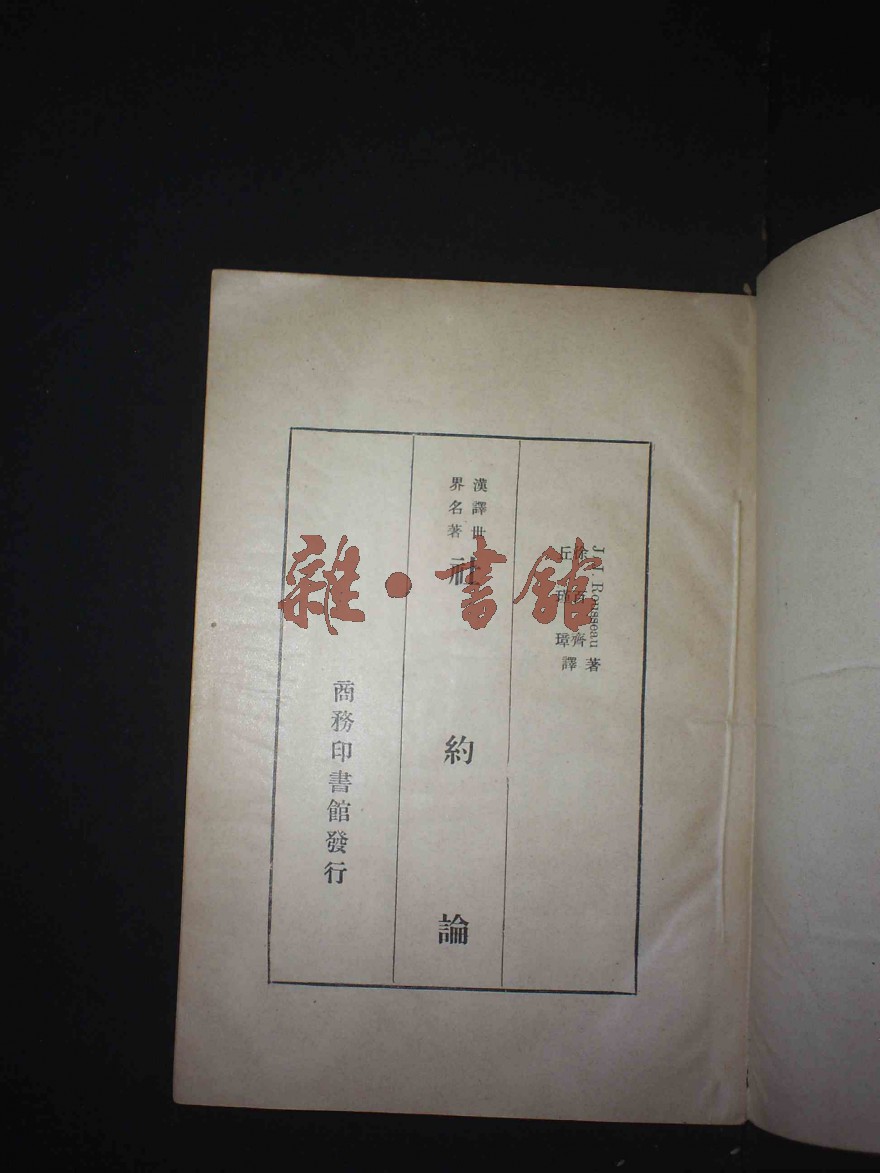 J. J. Rousseau 著
徐百齊
丘瑾璋譯
漢譯世
界名著
社約論
商務印書館發行
雜·書館